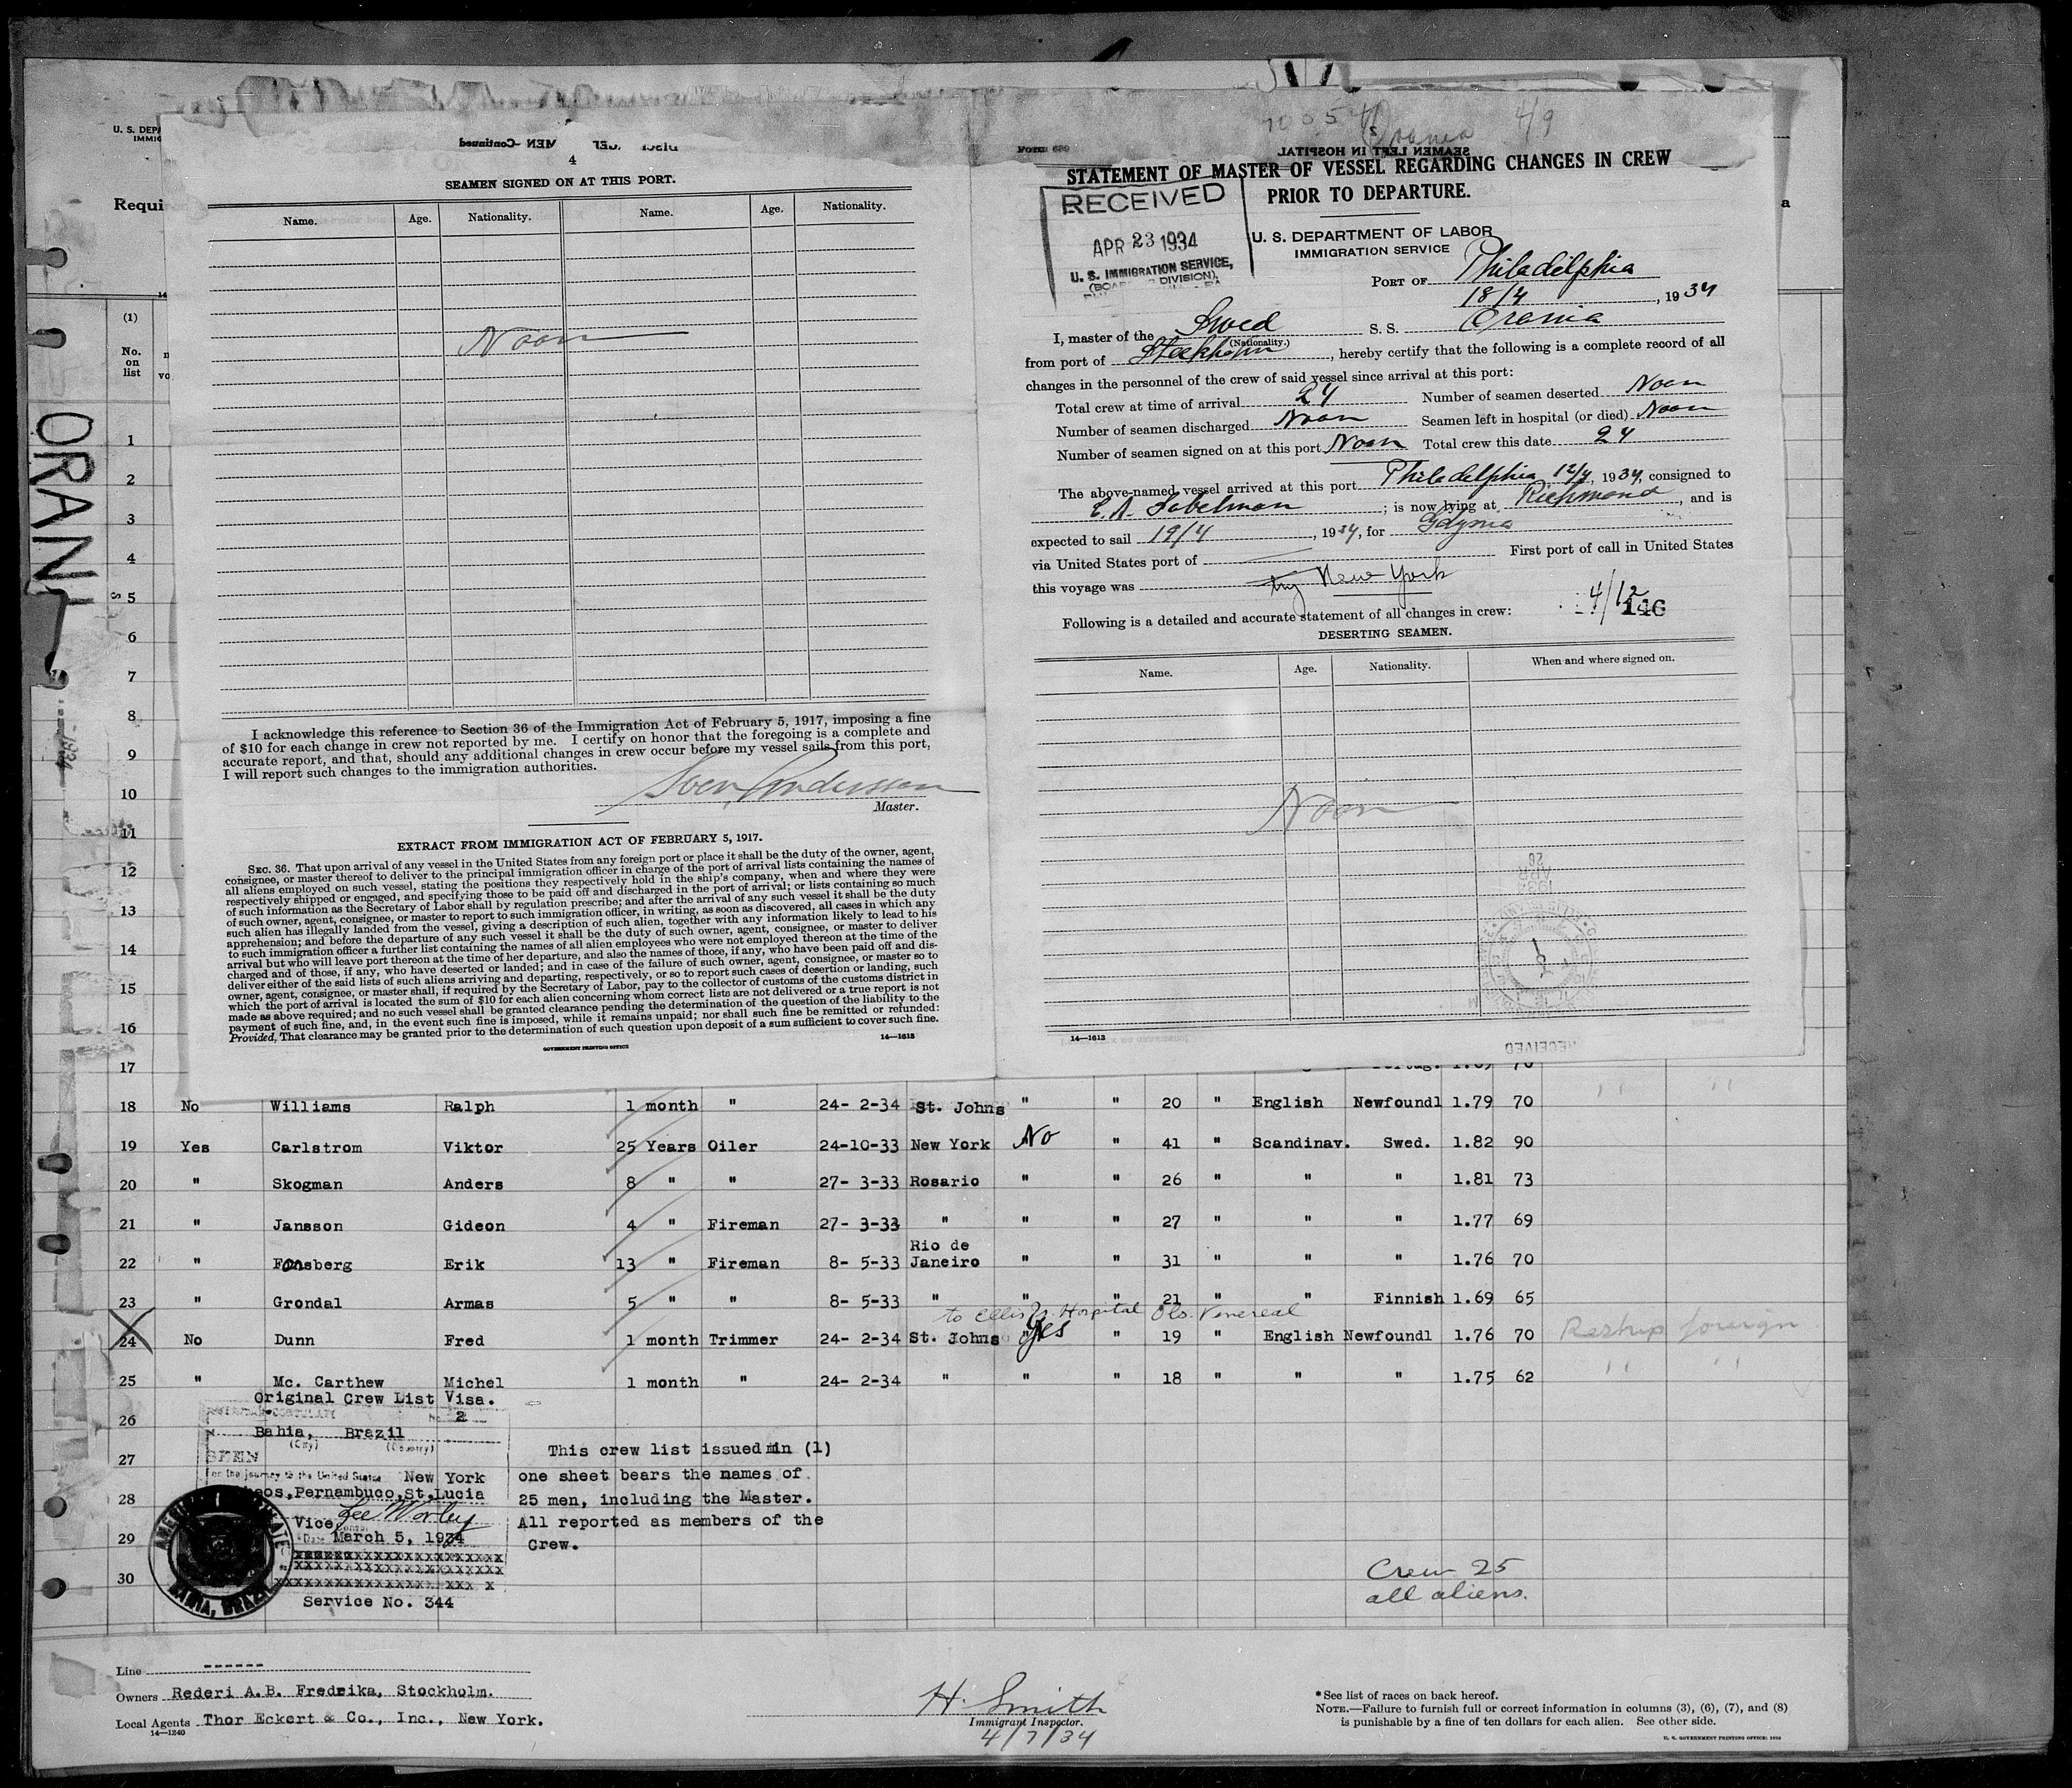 U. S. DEPA
IMMIG
Requi
(1)
No.
on
list
ORAN
4
SEAMEN SIGNED ON AT THIS PORT.
Name. Age. Nationality. Name. Age. Nationality.
Noon
I acknowledge this reference to Section 36 of the Immigration Act of February 5, 1917, imposing a fine
of $10 for each change in crew not reported by me. I certify on honor that the foregoing is a complete and
accurate report, and that, should any additional changes in crew occur before my vessel sails from this port,
I will report such changes to the immigration authorities.
Sven Andersson
Master.
EXTRACT FROM IMMIGRATION ACT OF FEBRUARY 5, 1917.
SEC. 36. That upon arrival of any vessel in the United States from any foreign port or place it shall be the duty of the owner, agent,
consignee, or master thereof to deliver to the principal immigration officer in charge of the port of arrival lists containing the names of
all aliens employed on such vessel, stating the positions they respectively hold in the ship's company, when and where they were
respectively shipped or engaged, and specifying those to be paid off and discharged in the port of arrival; or lists containing so much
of such information as the Secretary of Labor shall by regulation prescribe; and after the arrival of any such vessel it shall be the duty
of such owner, agent, consignee, or master to report to such immigration officer, in writing, as soon as discovered, all cases in which any
such alien has illegally landed from the vessel, giving a description of such alien, together with any information likely to lead to his
apprehension; and before the departure of any such vessel it shall be the duty of such owner, agent, consignee, or master to deliver
to such immigration officer a further list containing the names of all alien employees who were not employed thereon at the time of the
arrival but who will leave port thereon at the time of her departure, and also the names of those, if any, who have been paid off and dis-
charged and of those, if any, who have deserted or landed; and in case of the failure of such owner, agent, consignee, or master so to
deliver either of the said lists of such aliens arriving and departing, respectively, or so to report such cases of desertion or landing, such
owner, agent, consignee, or master shall, if required by the Secretary of Labor, pay to the collector of customs of the customs district in
which the port of arrival is located the sum of $10 for each alien concerning whom correct lists are not delivered or a true report is not
made as above required; and no such vessel shall be granted clearance pending the determination of the question of the liability to the
payment of such fine, and, in the event such fine is imposed, while it remains unpaid; nor shall such fine be remitted or refunded:
Provided, That clearance may be granted prior to the determination of such question upon deposit of a sum sufficient to cover such fine.
GOVERNMENT PRINTING OFFICE 14—1613
Form 689
4/9
SEAMEN LEFT IN HOSPITAL.
STATEMENT OF MASTER OF VESSEL REGARDING CHANGES IN CREW
PRIOR TO DEPARTURE.
RECEIVED
APR 23 1934
U. S. IMMIGRATION SERVICE,
U. S. DEPARTMENT OF LABOR
IMMIGRATION SERVICE
PORT OF Philadelphia
18/4, 1934
I, master of the Swed S. S. Orania
(Nationality.)
from port of Stockholm, hereby certify that the following is a complete record of all
changes in the personnel of the crew of said vessel since arrival at this port:
Total crew at time of arrival 24 Number of seamen deserted Noon
Number of seamen discharged Noon Seamen left in hospital (or died) Noon
Number of seamen signed on at this port Noon Total crew this date 24
The above-named vessel arrived at this port Philadelphia 12/4, 1934, consigned to
; is now lying at Richmond, and is
expected to sail 19/4, 1934, for Gdynia
via United States port of First port of call in United States
this voyage was New York
4/12
146
Following is a detailed and accurate statement of all changes in crew:
DESERTING SEAMEN.
Name. Age. Nationality. When and where signed on.
Noon
14—1613
1
2
3
4
5
6
7
8
9
10
11
12
13
14
15
16
17
18 No Williams Ralph 1 month " 24- 2-34 St. Johns " " 20 " English Newfoundl 1.79 70
19 Yes Carlstrom Viktor 25 Years Oiler 24-10-33 New York No " 41 " Scandinav. Swed. 1.82 90
20 " Skogman Anders 8 " " 27- 3-33 Rosario " " 26 " " " 1.81 73
21 " Jansson Gideon 4 " Fireman 27- 3-33 " " " 27 " " " 1.77 69
22 " Fonsberg Erik 13 " Fireman 8- 5-33 Rio de Janeiro " " 31 " " " 1.76 70
23 " Grondal Armas 5 " " 8- 5-33 " " " 21 " " Finnish 1.69 65
to Ellis Is. Hospital Obs. Venereal
24 No Dunn Fred 1 month Trimmer 24- 2-34 St. Johns Yes " 19 " English Newfoundl 1.76 70 Reship foreign
25 " Mc. Carthew Michel 1 month " 24- 2-34 " " " 18 " " " 1.75 62 " "
26
27
28
29
30
Original Crew List Visa.
No. 2
Bahia, Brazil
(City) (Country)
SEEN
For the journey to the United States New York
Pernambuco, St.Lucia
Vice Lee Worley
Date March 5, 1934
Service No. 344
This crew list issued in (1)
one sheet bears the names of
25 men, including the Master.
All reported as members of the
Crew.
Crew 25
all aliens.
Line ------
Owners Rederi A.B. Fredrika, Stockholm.
Local Agents Thor Eckert & Co., Inc., New York.
14—1240
H. Smith
Immigrant Inspector.
4/7/34
* See list of races on back hereof.
NOTE.—Failure to furnish full or correct information in columns (3), (6), (7), and (8)
is punishable by a fine of ten dollars for each alien. See other side.
U. S. GOVERNMENT PRINTING OFFICE